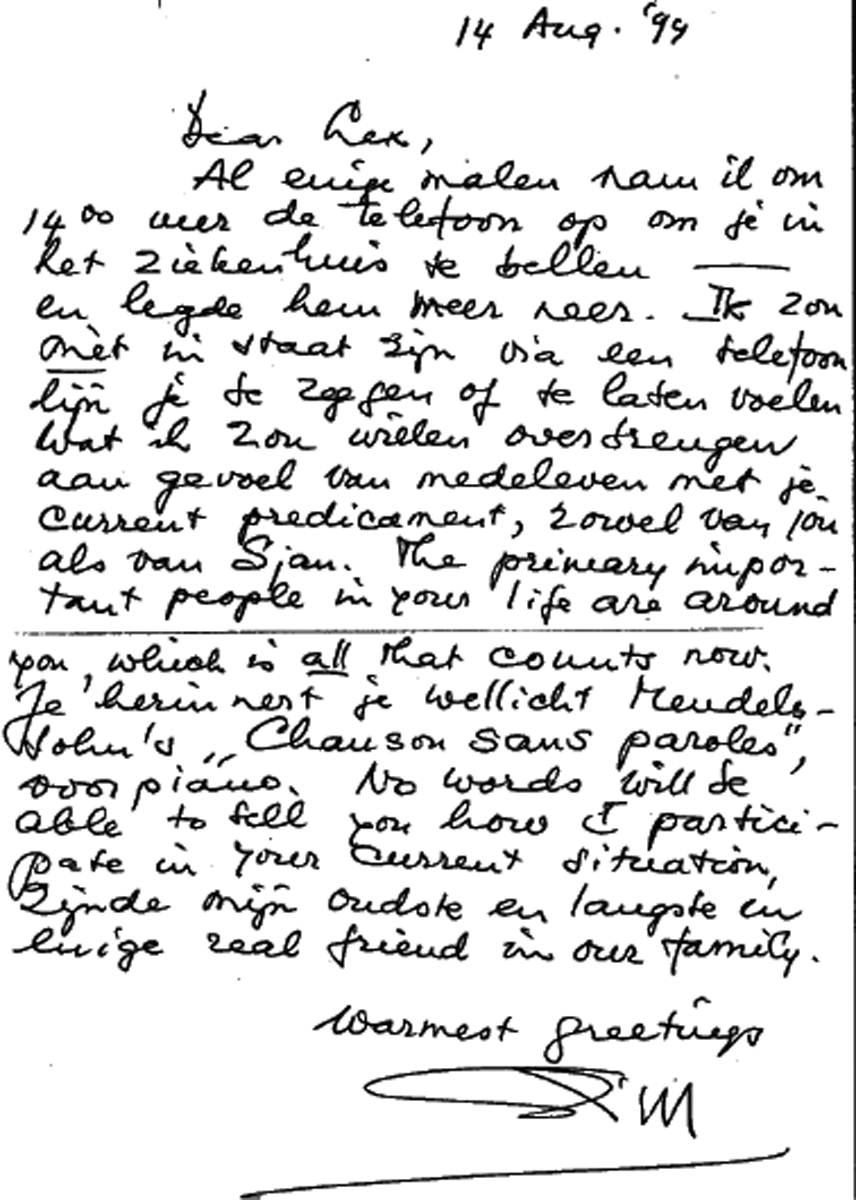 14 Aug. '99
Dear Lex,
Al enige malen nam ik om
14 00 uur de telefoon op om je in
het ziekenhuis te bellen —
en legde hem weer neer. Ik zou
niet in staat zijn via een telefoon
lijn je te zeggen of te laten voelen
wat ik zou willen overbrengen
aan gevoel van medeleven met je
current predicament, zowel van jou
als van Sjan. The primary impor-
tant people in your life are around
you, which is all that counts now.
Je herinnert je wellicht Mendels-
sohn's „Chanson sans paroles",
voor piano. No words will be
able to tell you how I partici-
pate in your current situation,
zijnde mijn oudste en langste en
enige real friend in our family.
Warmest greetings